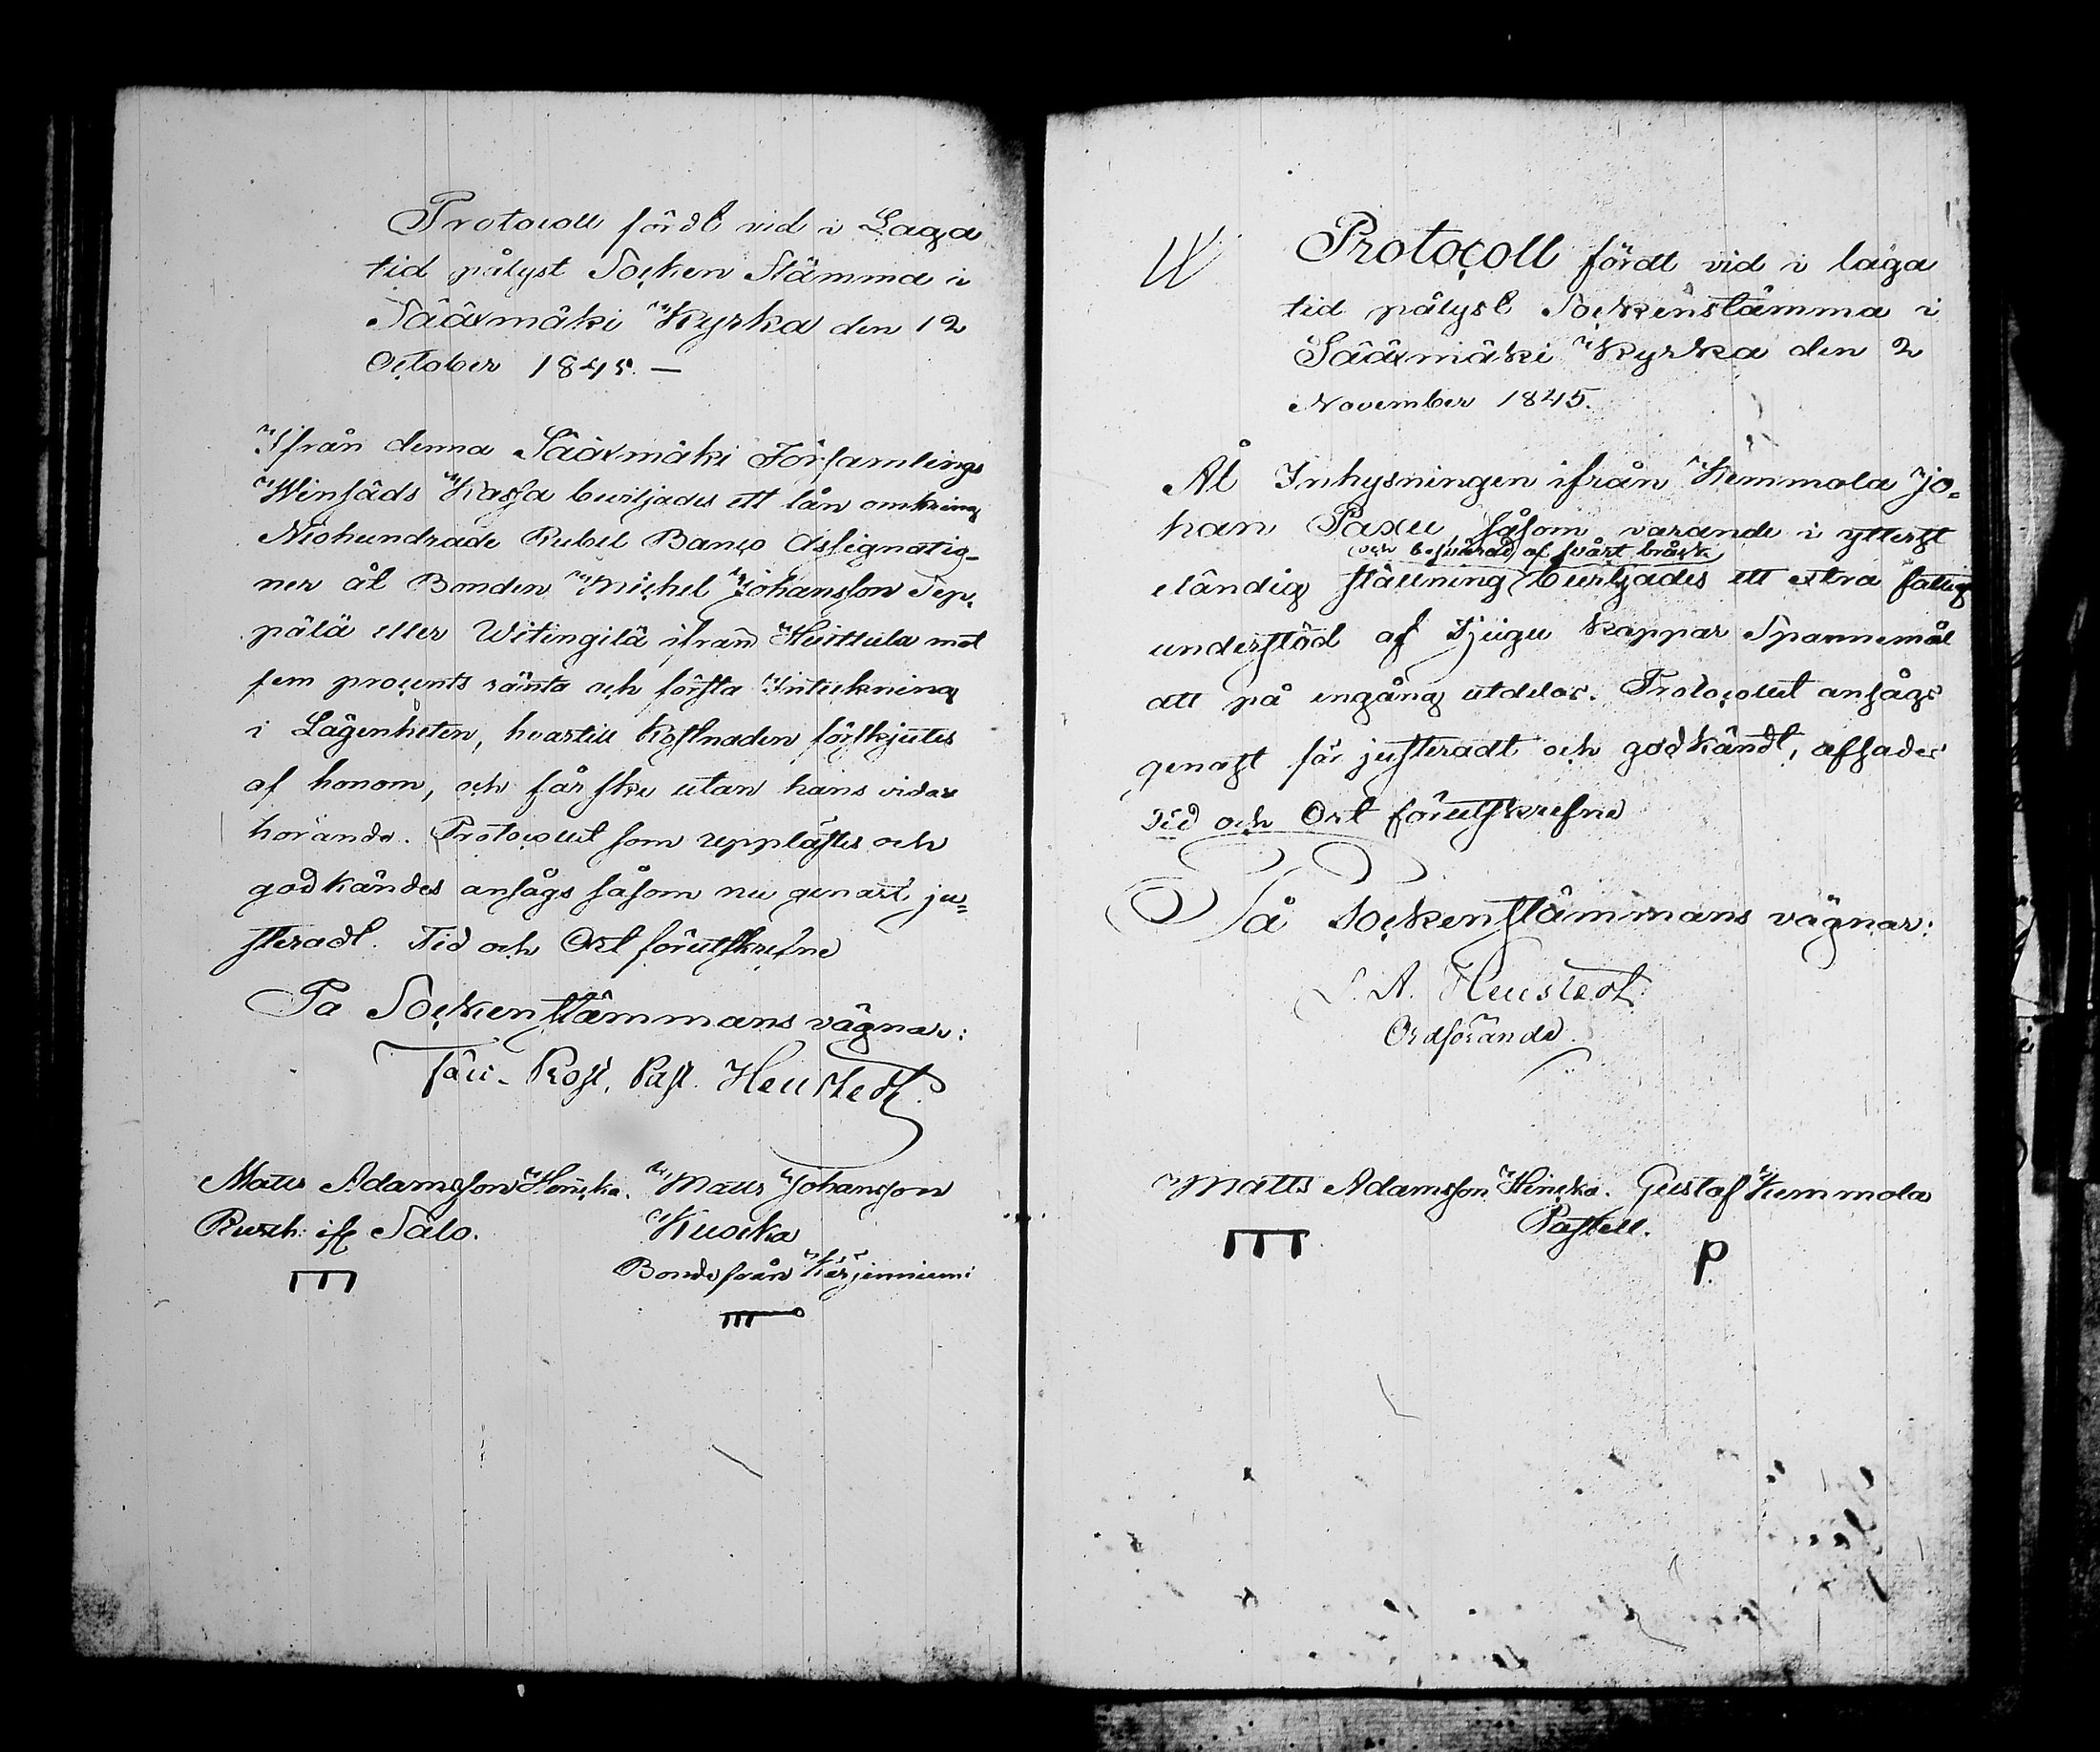 Protocoll fördt vid i Laga
tid pålyst Socken Stämma i
Sääxmäki Kyrka den 12
October 1845. —
Ifrån denna Sääxmäki Församlings
Winsäds Kassa beviljades ett lån omkring
Niohundrade Rubel Banco Assignatio-
ner åt Bonden Michel Johansson Sep-
pälä eller Witingilä ifrån Huittula mot
fem procents ränta och första Inteckning
i Lägenheten, hvartill Kostnaden förskjutes
af honom, och får ske utan hans vidare
hörande. Protocollet som upplästes och
godkändes ansågs såsom nu genast ju=
steradt. Tid och Ort förutskrefne
På Sockenstämmans vägnar:
Past. Heurstedt.
Matts Adamsson Hencka. Matts Johansson
Rusth: ifr Salo. Kuocka
Bonde från Karjenniemi
W
Protocoll fördt vid i laga
tid pålyst Sockenstämma i
Sääxmäki Kyrka den 2
November 1845.
Åt Inhysningen ifrån Kemmola Jo=
han Paxu, såsom varande i ytterst
och besvärad af svårt bråck
eländig ställning beviljades ett extra fattig
understöd af tjugu kappar Spannemål
att på engång utdelas. Protocollet ansågs
genast för justeradt och godkändt, afsades
Tid och Ort förutskrefne
På Sockenstämmans vägnar:
A. Heurstedt
Ordförande.
Matts Adamsson Hencka. Gustaf Kemmola
Pastell.
P